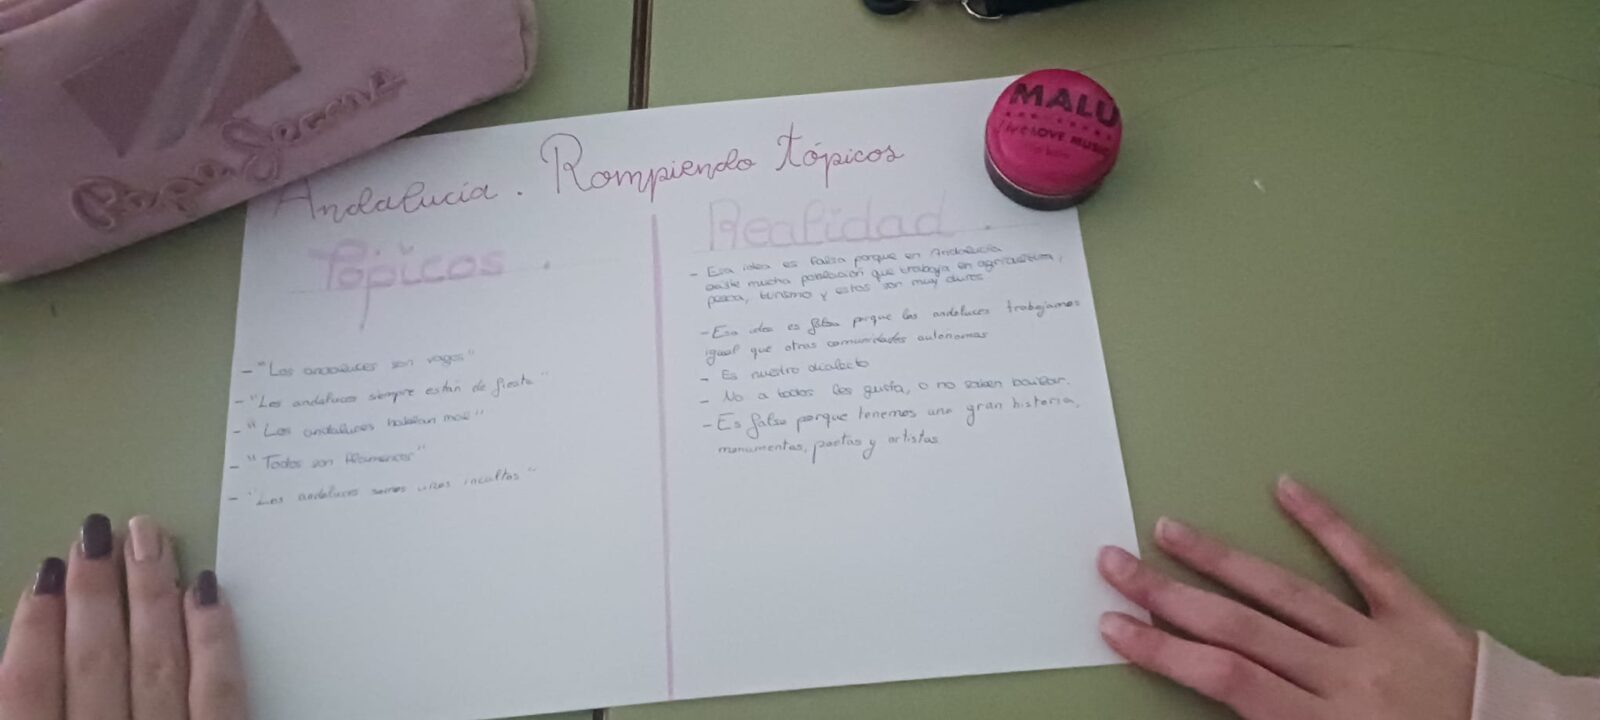 Pepe Jeans
MALÚ
live LOVE MUSIC
lip balm
Andalucía . Rompiendo tópicos
Tópicos .
- "Los andaluces son vagos"
- "Los andaluces siempre están de fiesta"
- "Los andaluces hablan mal"
- "Todos son flamencos"
- "Los andaluces somos unos incultos"
Realidad .
- Esa idea es falsa porque en Andalucía
existe mucha población que trabaja en agricultura,
pesca, turismo y estos son muy duros
- Esa idea es falsa porque los andaluces trabajamos
igual que otras comunidades autónomas
- Es nuestro dialecto
- No a todos les gusta, o no saben bailar.
- Es falso porque tenemos una gran historia,
monumentos, poetas y artistas